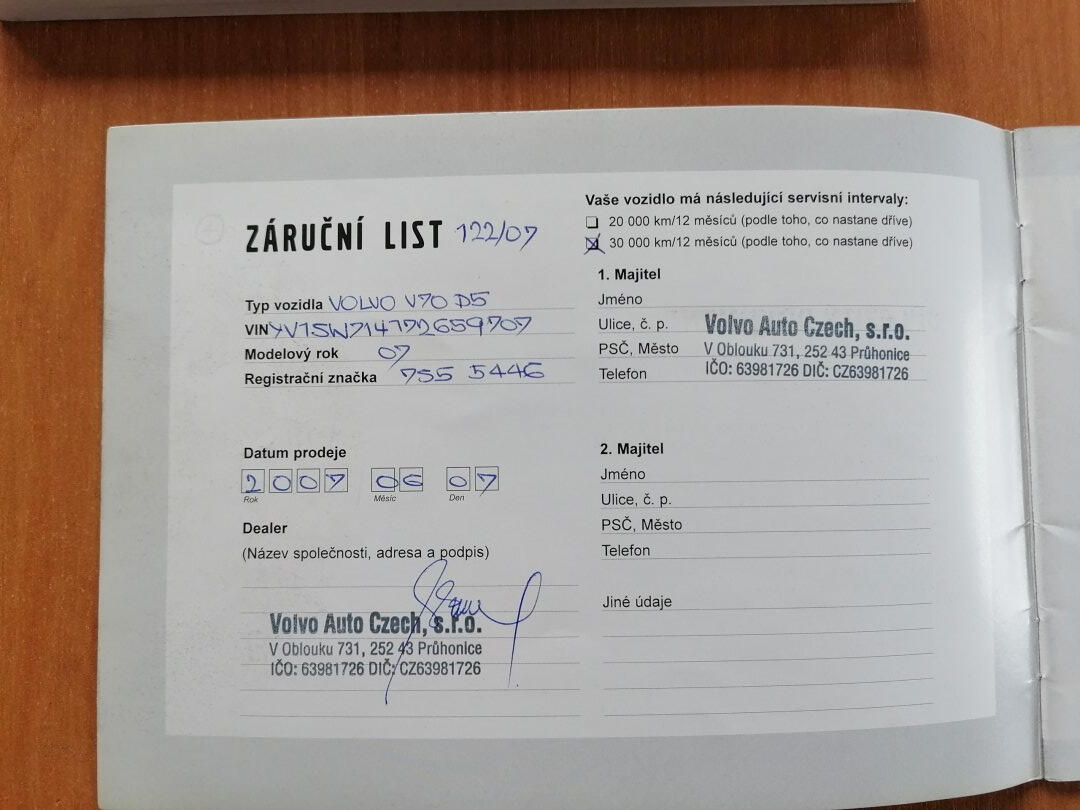 ZÁRUČNÍ LIST 122/07
Typ vozidla VOLVO V70 D5
VIN YV1SW714772659707
Modelový rok 07
Registrační značka 7S5 5446
Datum prodeje
2007 06 07
Rok Měsíc Den
Dealer
(Název společnosti, adresa a podpis)
Volvo Auto Czech, s.r.o.
V Oblouku 731, 252 43 Průhonice
IČO: 63981726 DIČ: CZ63981726
Vaše vozidlo má následující servisní intervaly:
20 000 km/12 měsíců (podle toho, co nastane dříve)
30 000 km/12 měsíců (podle toho, co nastane dříve)
1. Majitel
Jméno
Ulice, č. p. Volvo Auto Czech, s.r.o.
PSČ, Město V Oblouku 731, 252 43 Průhonice
Telefon IČO: 63981726 DIČ: CZ63981726
2. Majitel
Jméno
Ulice, č. p.
PSČ, Město
Telefon
Jiné údaje